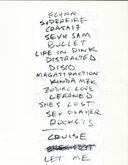 FLYNN
SUPERFIRE
CRASH17
SEXY SAM
BULLET
LIFE IN PINK
DISTRACTED
DISCO
MAGATTRACTION
KINDA MZK
ZODIAC LOVE
LEARNED
SHE'S LOST
SEX PLAYER
ROCKETS
CRUISE
LET ME